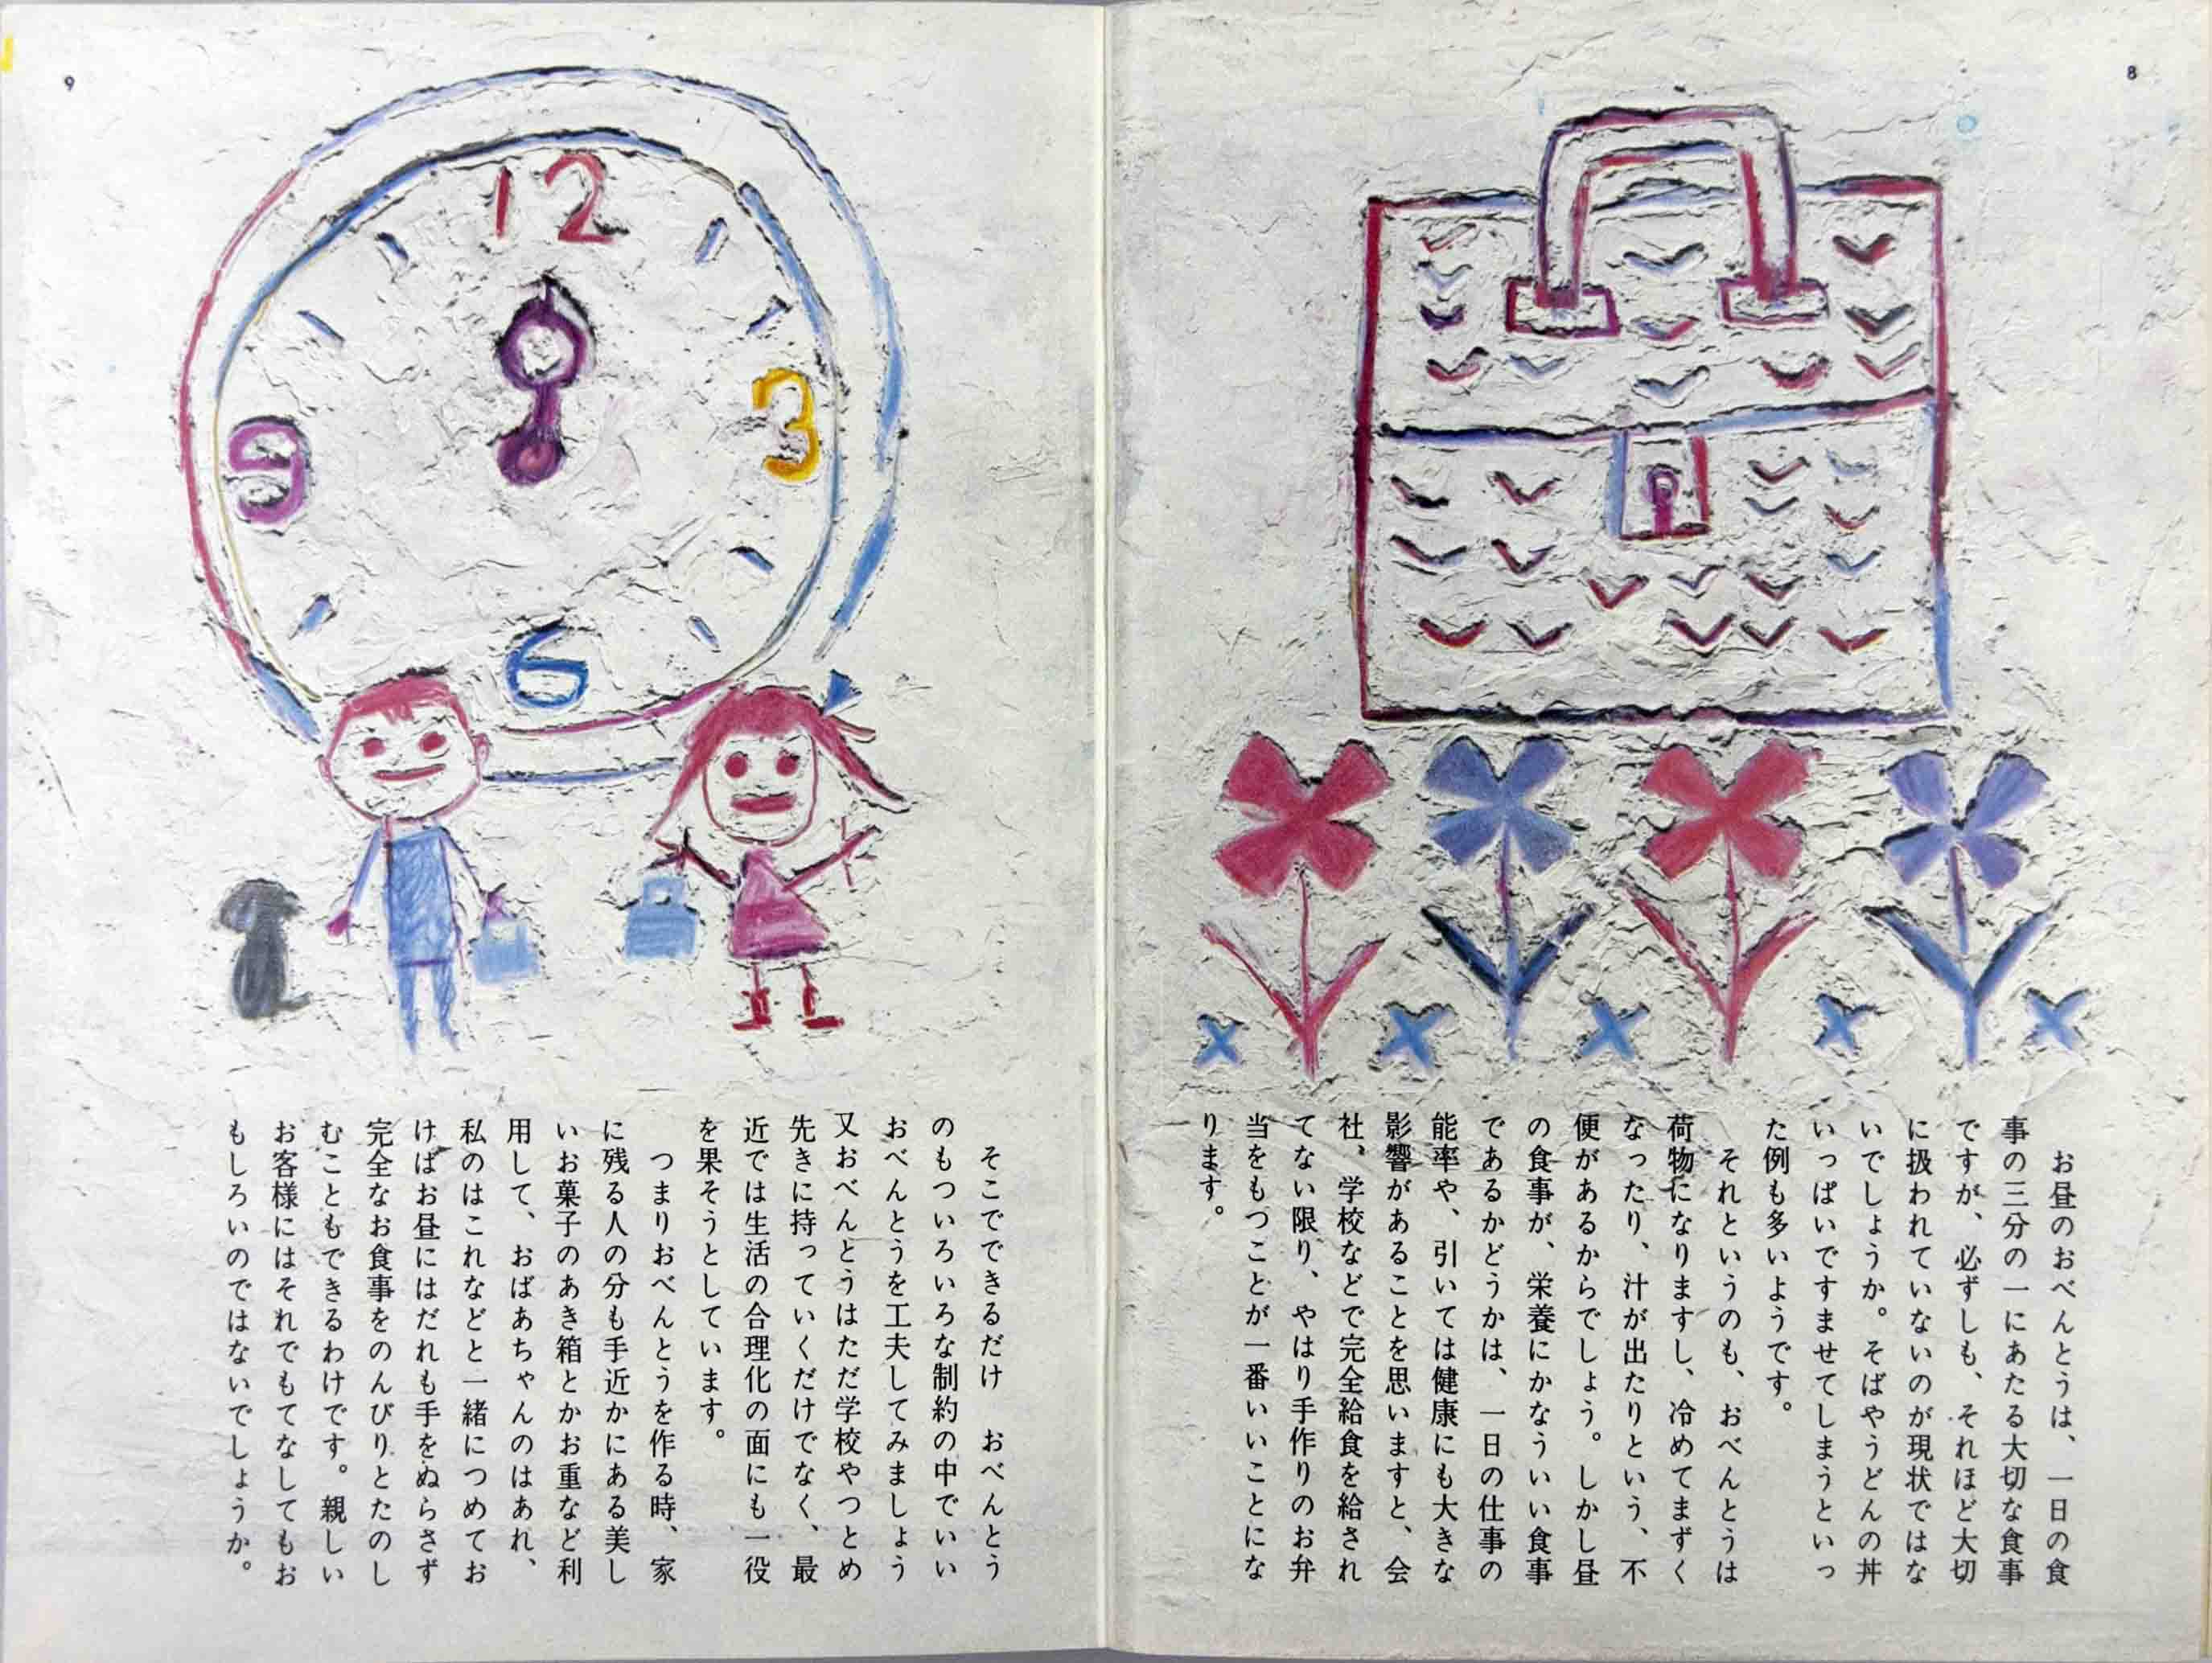 8
お昼のおべんとうは、一日の食
事の三分の一にあたる大切な食事
ですが、必ずしも、それほど大切
に扱われていないのが現状ではな
いでしょうか。そばやうどんの丼
いっぱいですませてしまうといっ
た例も多いようです。
それというのも、おべんとうは
荷物になりますし、冷めてまずく
なったり、汁が出たりという、不
便があるからでしょう。しかし昼
の食事が、栄養にかなういい食事
であるかどうかは、一日の仕事の
能率や、引いては健康にも大きな
影響があることを思いますと、会
社、学校などで完全給食を給され
てない限り、やはり手作りのお弁
当をもつことが一番いいことにな
ります。
9
12
3
6
9
そこでできるだけ おべんとう
のもついろいろな制約の中でいい
おべんとうを工夫してみましょう
又おべんとうはただ学校やつとめ
先きに持っていくだけでなく、最
近では生活の合理化の面にも一役
を果そうとしています。
つまりおべんとうを作る時、家
に残る人の分も手近かにある美し
いお菓子のあき箱とかお重など利
用して、おばあちゃんのはあれ、
私のはこれなどと一緒につめてお
けばお昼にはだれも手をぬらさず
完全なお食事をのんびりとたのし
むこともできるわけです。親しい
お客様にはそれでもてなしてもお
もしろいのではないでしょうか。